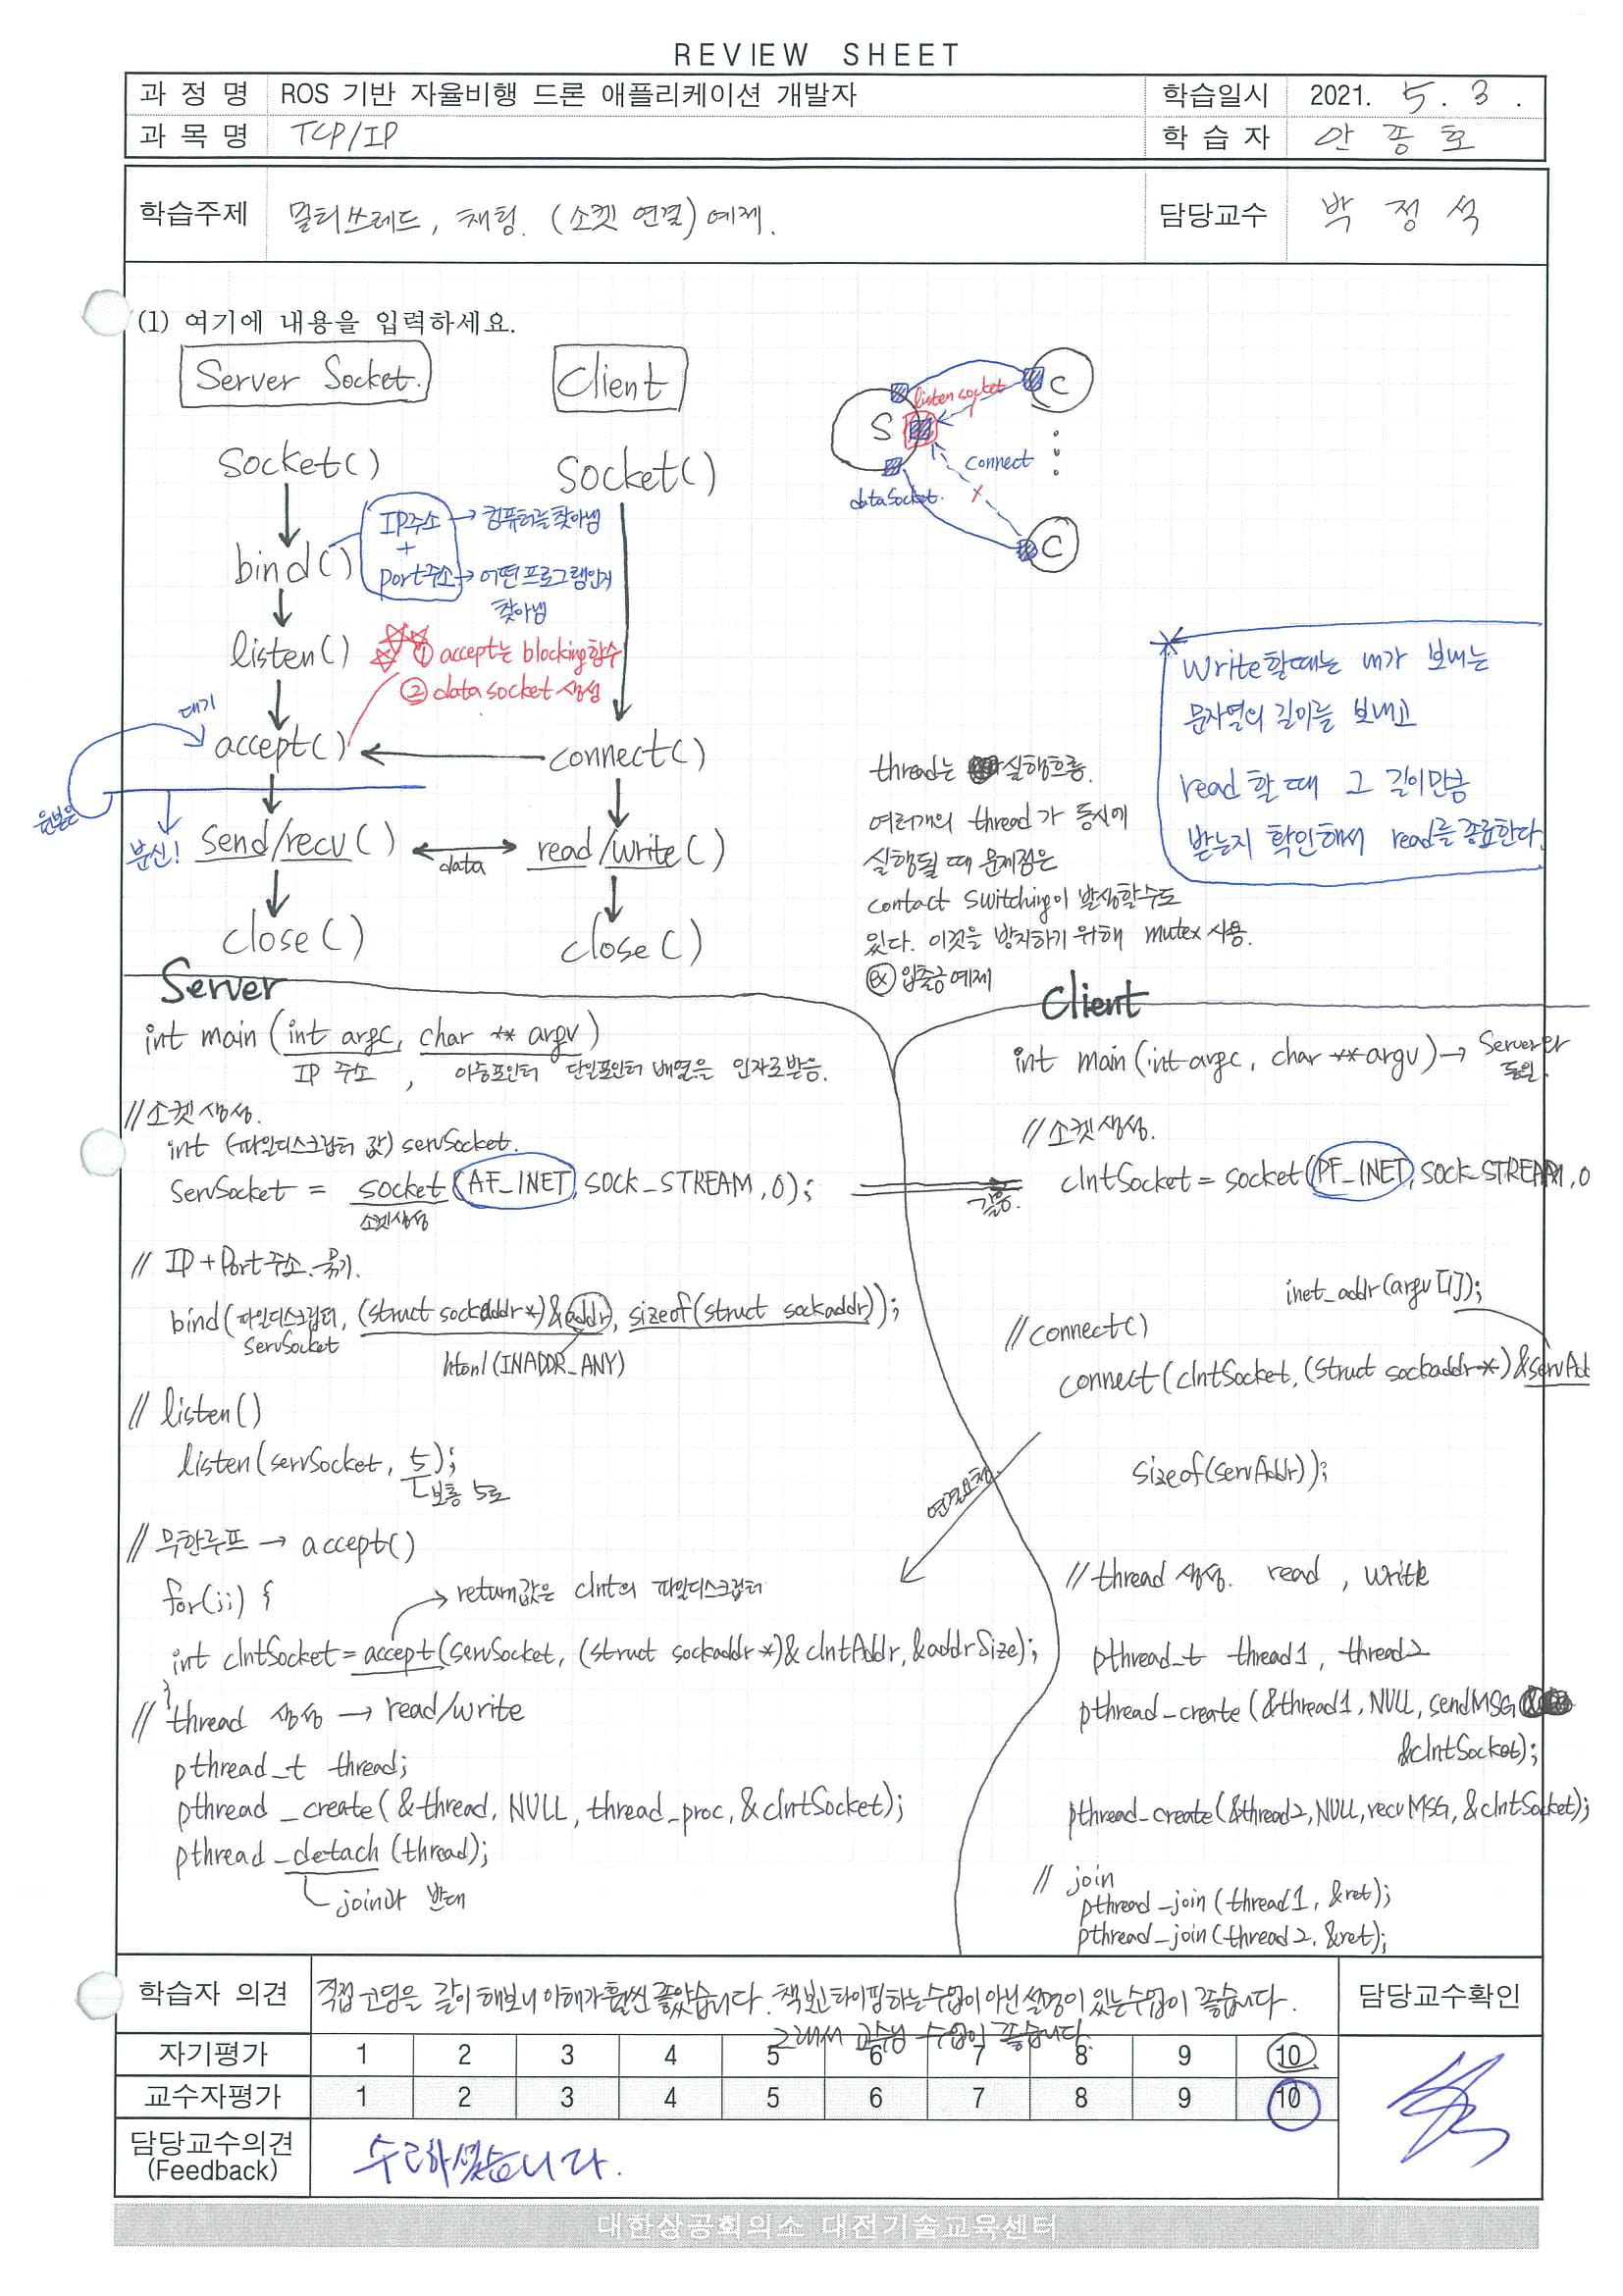 REVIEW SHEET
과 정 명 ROS 기반 자율비행 드론 애플리케이션 개발자 학습일시 2021. 5. 3.
과 목 명 TCP/IP 학 습 자 안 종 호
학습주제 멀티쓰레드, 채팅. (소켓 연결) 예제. 담당교수 박 정 석
(1) 여기에 내용을 입력하세요.
Server Socket. Client
socket() socket()
bind() IP주소 → 컴퓨터를 찾아냄
+
port주소 → 어떤프로그램인지
찾아냄
listen() ① accept는 blocking함수
② data socket 생성
대기
accept() connect()
원본은
분신! send/recv() data read/write()
close() close()
S listen socket C
connect
data socket.
C
Write할때는 내가 보내는
문자열의 길이를 보내고
read 할 때 그 길이만큼
받는지 확인해서 read를 종료한다.
thread는 실행흐름.
여러개의 thread가 동시에
실행될 때 문제점은
contact switching이 발생할수도
있다. 이것을 방지하기 위해 mutex 사용.
ex) 입출금 예제
Server
int main (int argc, char ** argv)
IP 주소, 이중포인터 단일포인터 배열을 인자로받음.
//소켓 생성.
int (파일디스크립터 값) servSocket.
servSocket = socket(AF_INET, SOCK_STREAM, 0);
소켓생성
같음.
// IP + Port 주소 묶기.
bind(파일디스크립터, (struct sockaddr*)&addr, sizeof(struct sockaddr));
servSocket
htonl(INADDR_ANY)
// listen()
listen(servSocket, 5);
보통 5로
// 무한루프 → accept()
for(;;) {
→ return값은 clnt의 파일디스크립터
int clntSocket = accept(servSocket, (struct sockaddr*)& clntAddr, &addrSize);
}
// thread 생성 → read/write
pthread_t thread;
pthread_create(&thread, NULL, thread_proc, &clntSocket);
pthread_detach(thread);
join과 반대
Client
int main(int argc, char **argv) → Server와
동일.
//소켓 생성.
clntSocket = socket(PF_INET, SOCK_STREAM, 0
inet_addr(argv[1]);
//connect()
connect(clntSocket, (struct sockaddr*)&servAd
sizeof(servAddr));
연결요청.
//thread 생성. read, write
pthread_t thread1, thread2
pthread_create(&thread1, NULL, sendMSG
&clntSocket);
pthread_create(&thread2, NULL, recvMSG, &clntSocket);
// join
pthread_join(thread1, &ret);
pthread_join(thread2, &ret);
학습자 의견 직접 코딩을 같이 해보니 이해가 훨씬 좋았습니다. 책보고 타이핑하는수업이 아닌 설명이 있는수업이 좋습니다. 담당교수확인
그래서 교수님 수업이 좋습니다.
자기평가 1 2 3 4 5 6 7 8 9 10
교수자평가 1 2 3 4 5 6 7 8 9 10
담당교수의견
(Feedback) 수고하셨습니다.
대한상공회의소 대전기술교육센터